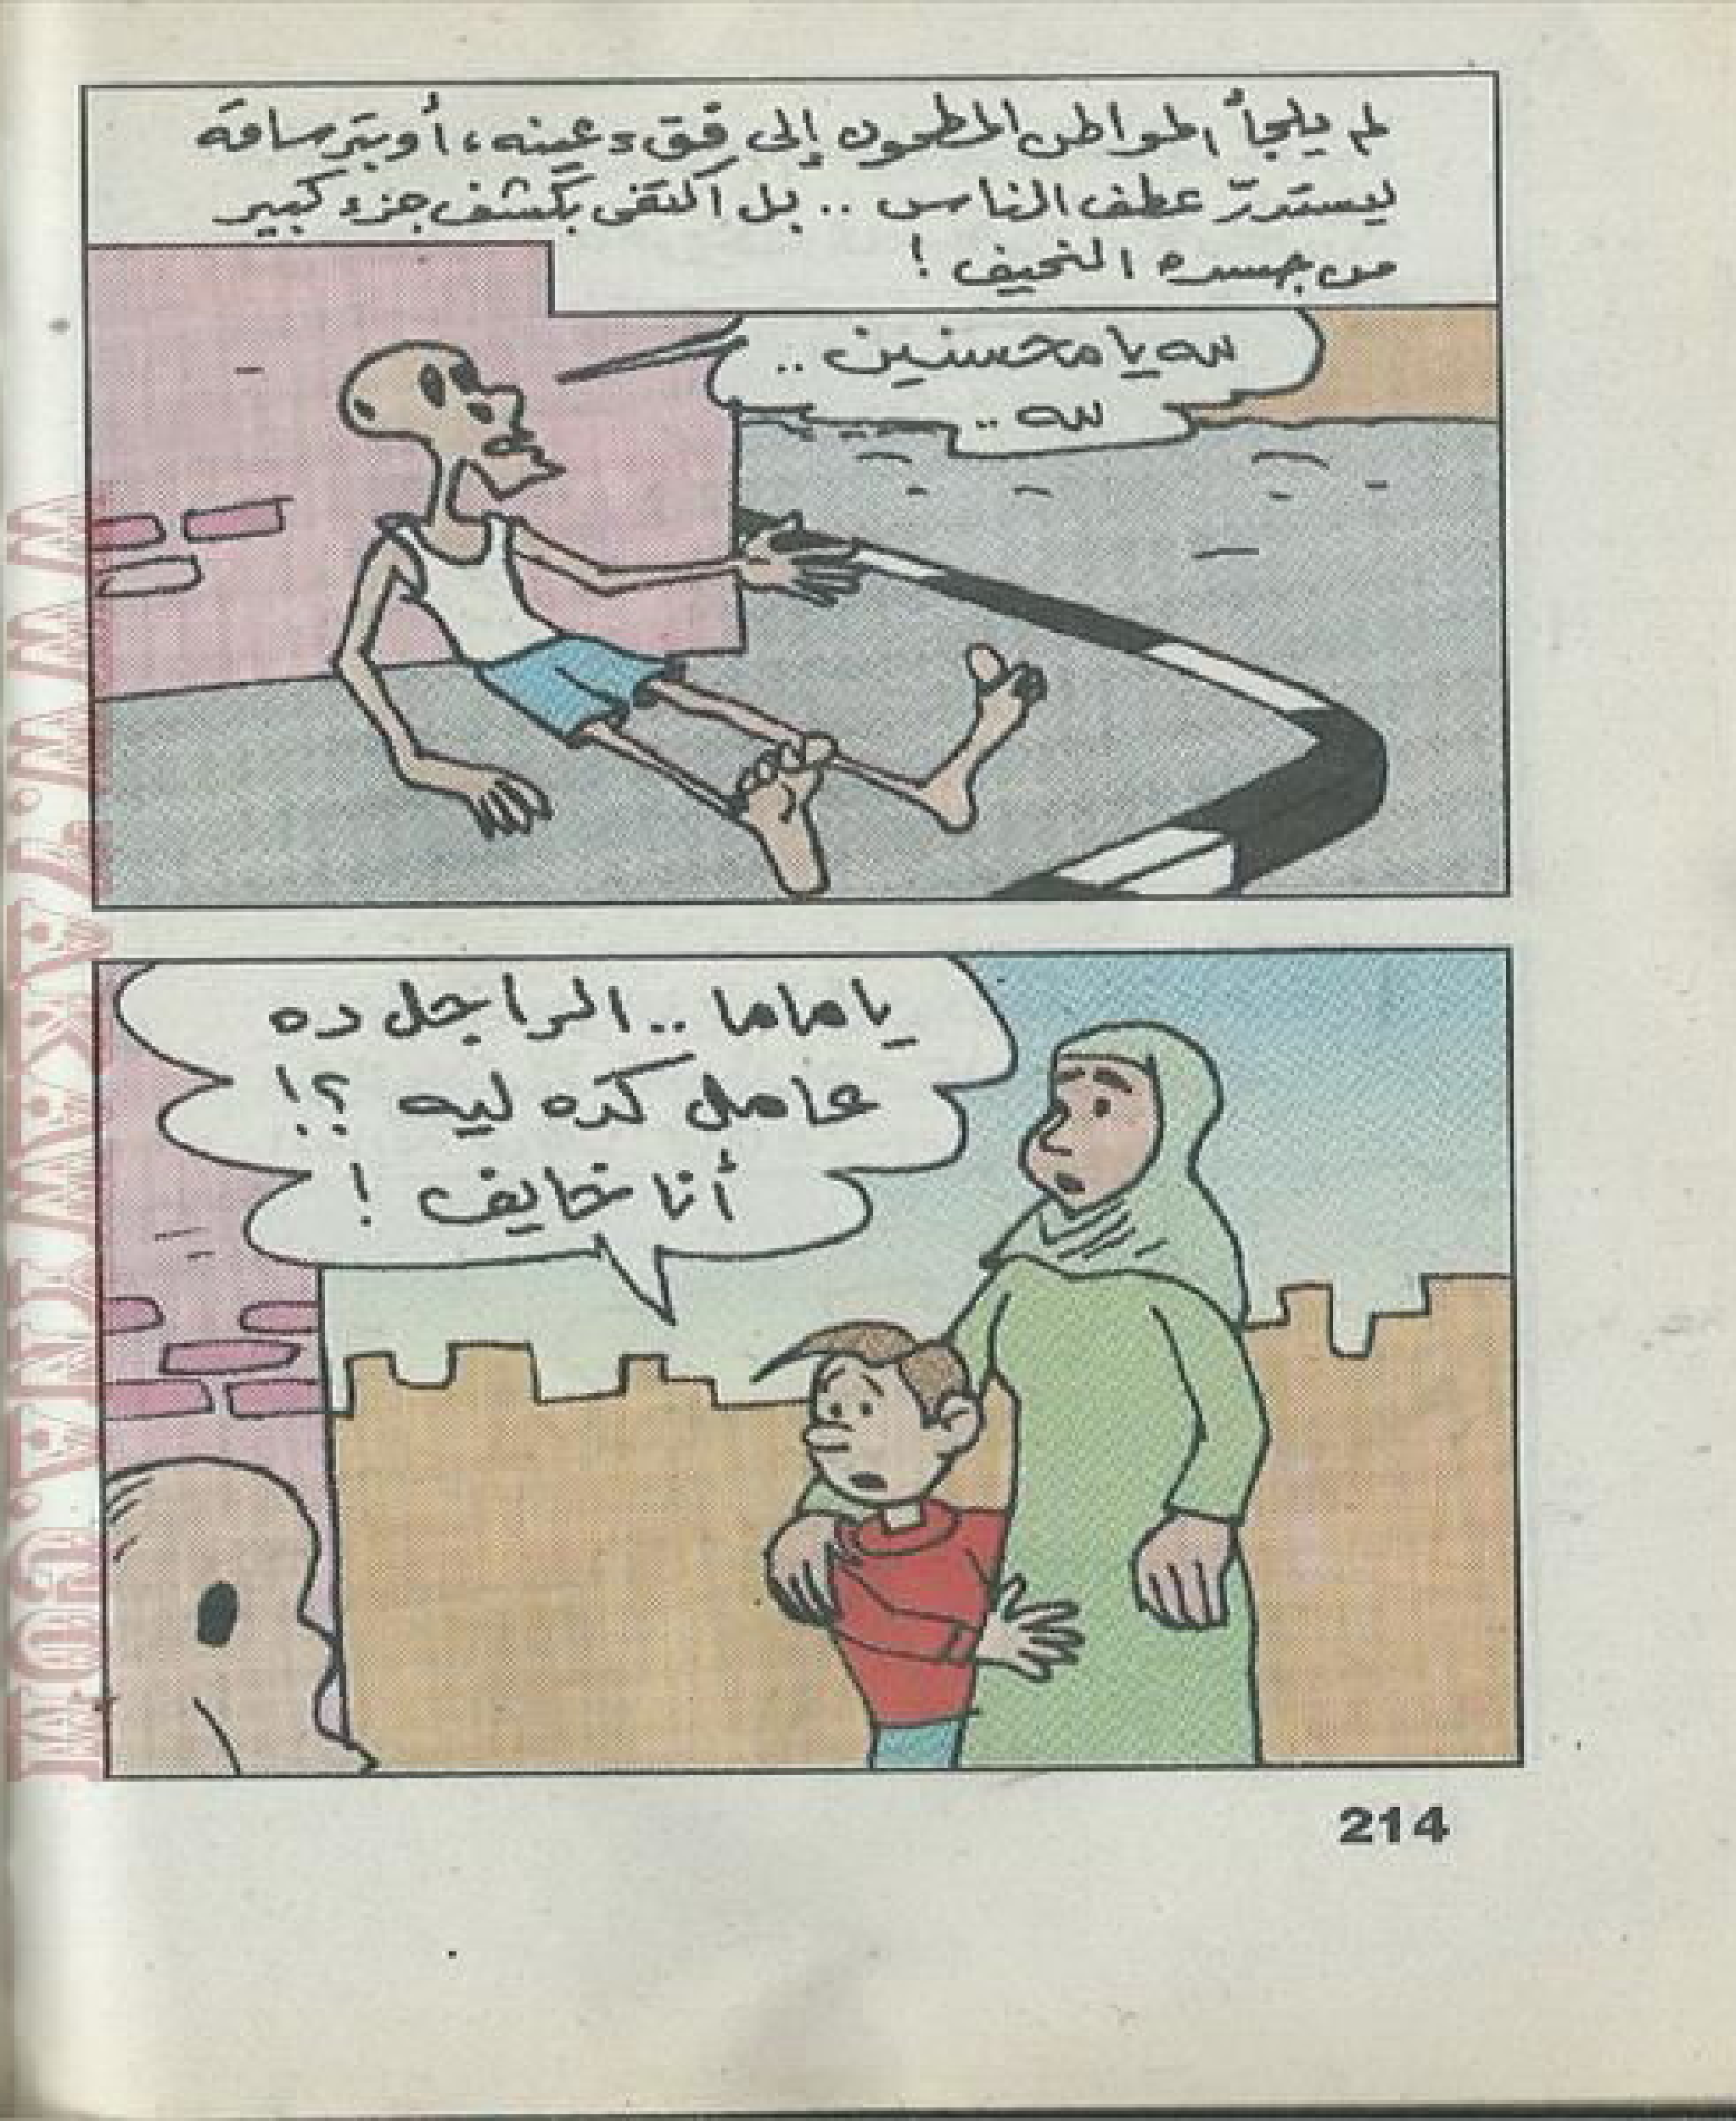 لم يلجأ المواطن المطحون إلى فقء عينه، أو بتر ساقه
ليستدرّ عطف الناس .. بل اكتفى بكشف جزء كبير
من جسده النحيف !
لله يا محسنين ..
لله ..
يا ماما .. الراجل ده
عامل كده ليه ؟!
أنا خايف !
214